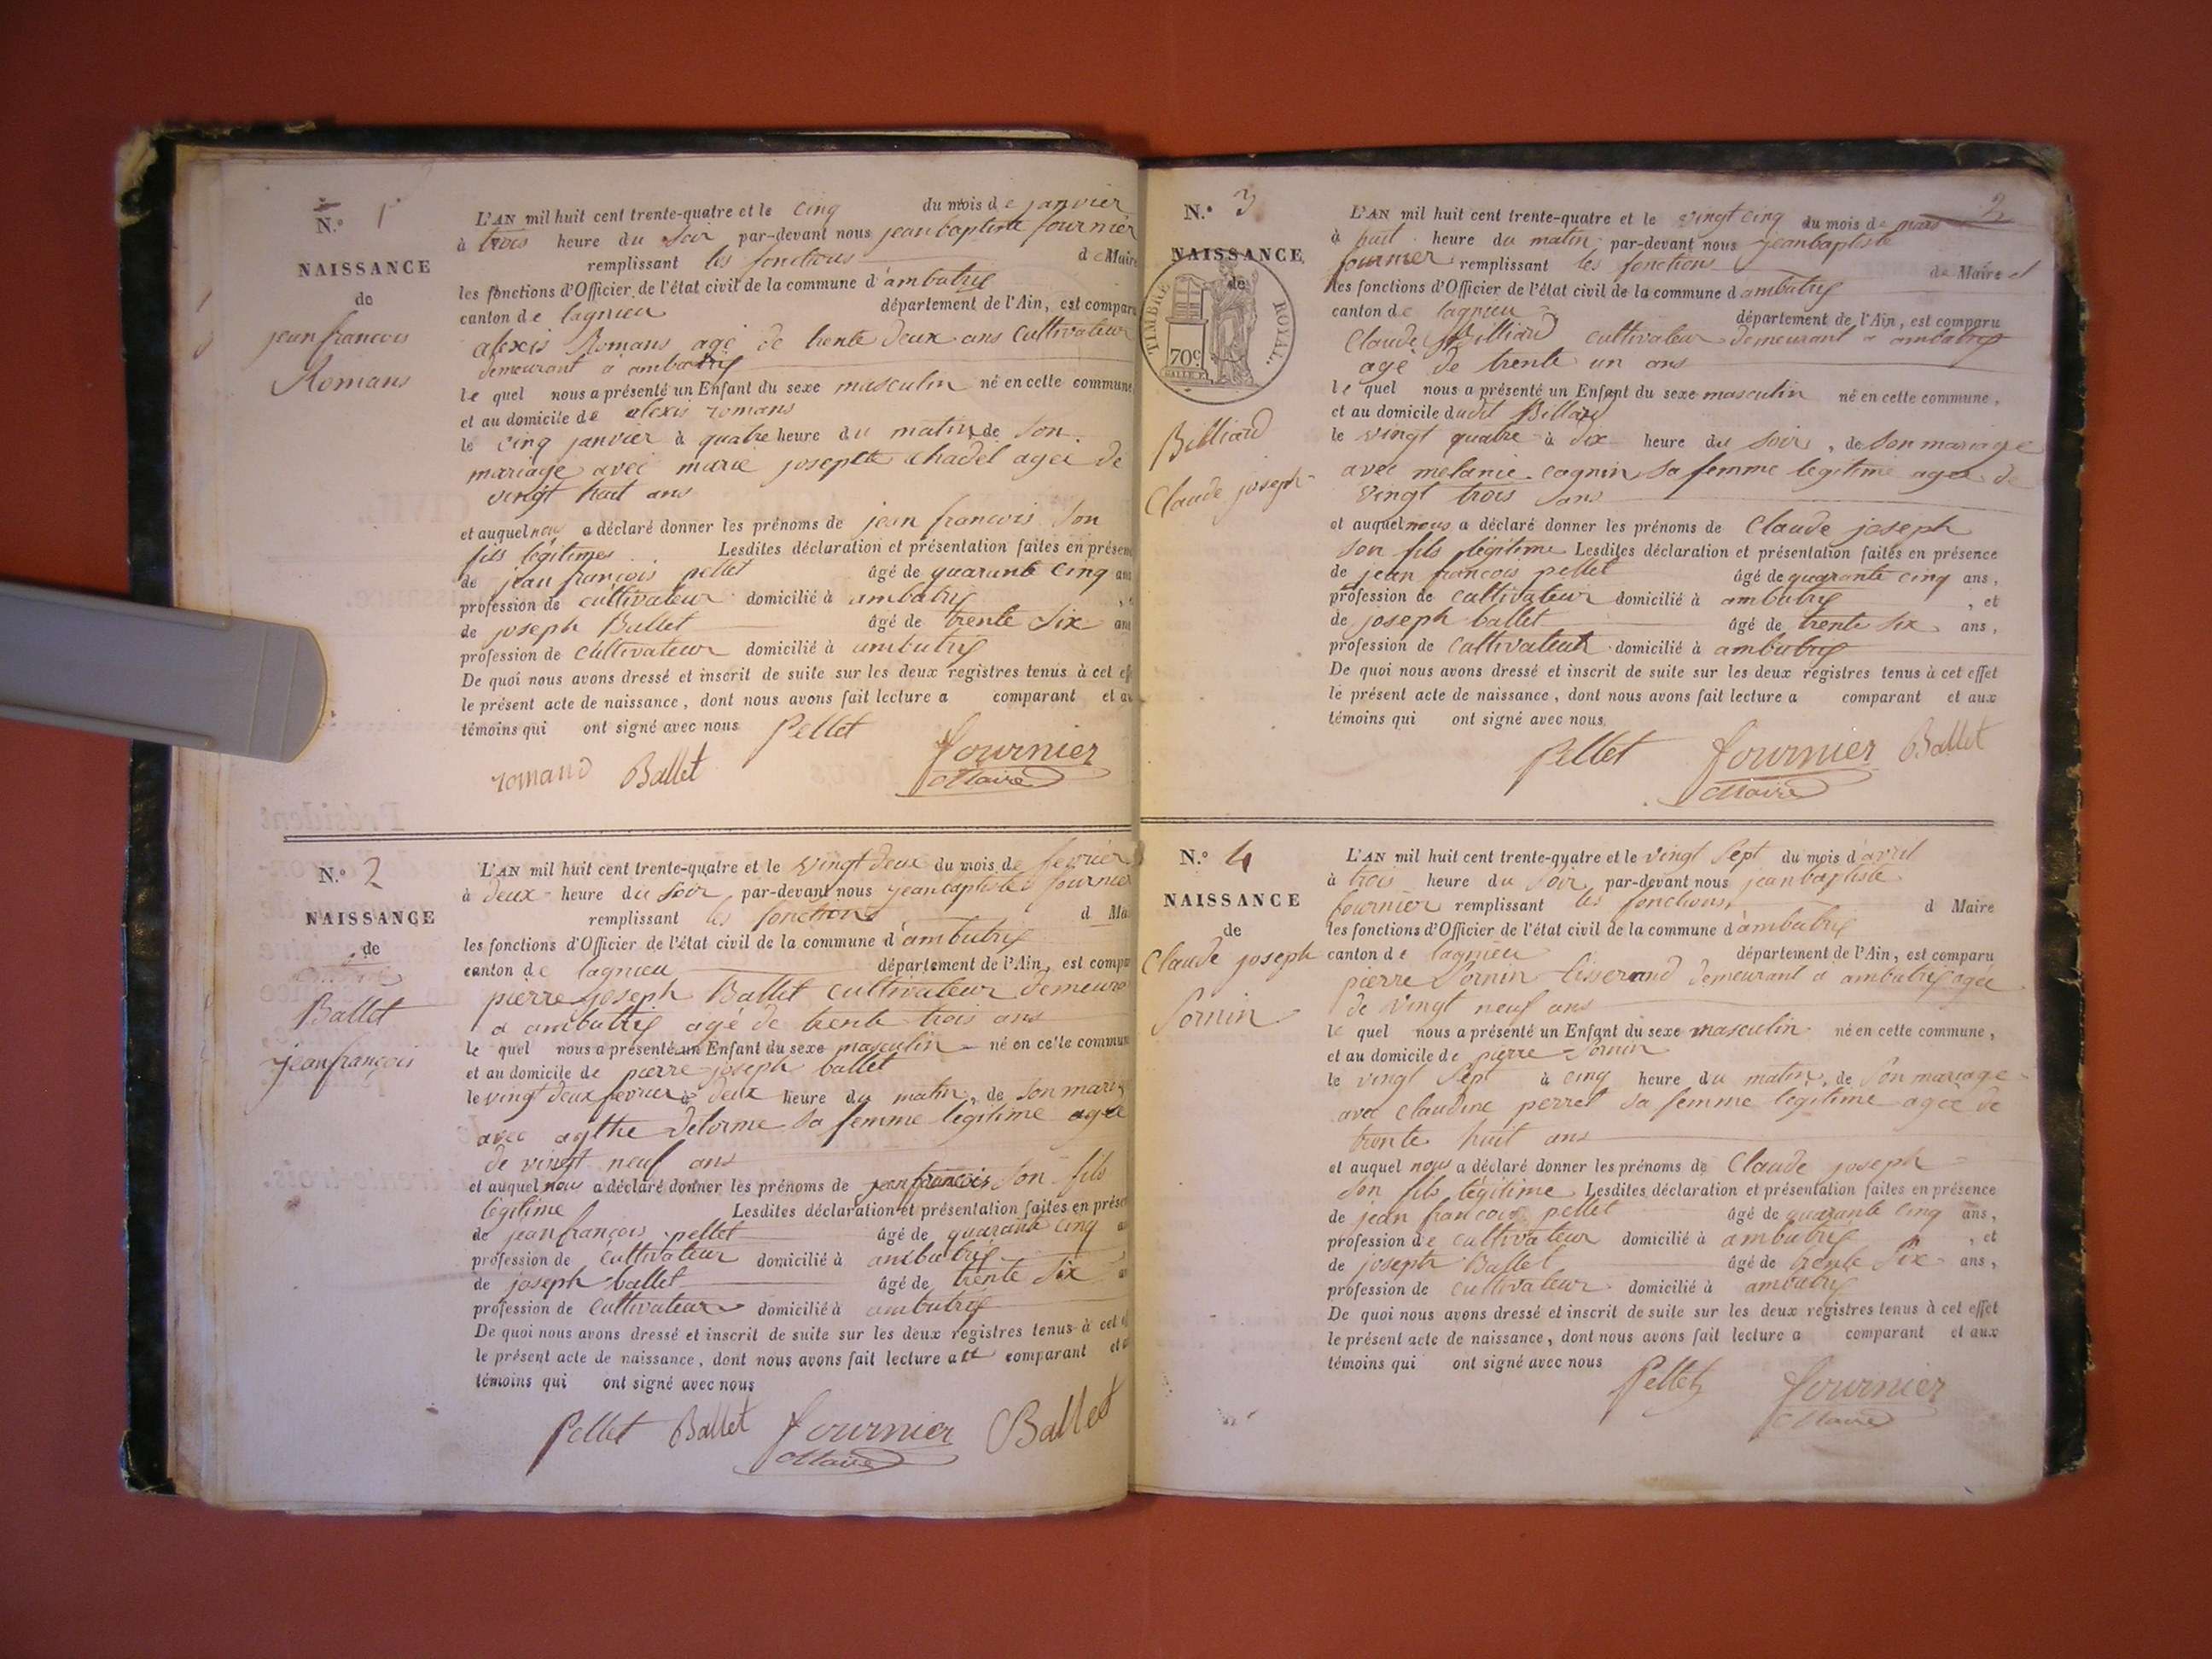 N.o 1
NAISSANCE
de
jean francois
Romans
L'AN mil huit cent trente-quatre et le cinq du mois de janvier
à trois heure du soir par-devant nous jean baptiste fournier
remplissant les fonctions de Maire
les fonctions d'Officier de l'état civil de la commune d'ambutrix
canton de lagnieu département de l'Ain, est comparu
alexis Romans agé de trente deux ans cultivateur
demeurant a ambutrix
le quel nous a présenté un Enfant du sexe masculin né en cette commune,
et au domicile de alexis romans
le cinq janvier à quatre heure du matin, de son
mariage avec marie josephte chadel agee de
vingt huit ans
et auquel nous a déclaré donner les prénoms de jean francois son
fils légitimes Lesdites déclaration et présentation faites en présen
de jean françois pellet âgé de quarante cinq ans
profession de cultivateur domicilié à ambutrix
de joseph Ballet âgé de trente six ans
profession de cultivateur domicilié à ambutrix
De quoi nous avons dressé et inscrit de suite sur les deux registres tenus à cet eff
le présent acte de naissance, dont nous avons fait lecture a comparant et au
témoins qui ont signé avec nous Pellet
romand Ballet fournier
Maire
N.o 2
NAISSANCE
de
Ballet
jean françois
L'AN mil huit cent trente-quatre et le vingt deux du mois de fevrier
à deux heure du soir par-devant nous jean baptiste fournier
remplissant les fonctions d Ma
les fonctions d'Officier de l'état civil de la commune d'ambutrix
canton de lagnieu département de l'Ain, est compa
pierre joseph Ballet cultivateur demeura
a ambutrix agé de trente trois ans
le quel nous a présenté un Enfant du sexe masculin né en cette commun
et au domicile de pierre joseph ballet
le vingt deux fevrier à deux heure du matin, de son mariag
avec agthe Delorme sa femme legitime agee
de vingt neuf ans
et auquel nous a déclaré donner les prénoms de jean francois son fils
légitime Lesdites déclaration et présentation faites en prése
de jean françois pellet âgé de quarante cinq
profession de cultivateur domicilié à ambutrix
de joseph ballet âgé de trente six
profession de cultivateur domicilié à ambutrix
De quoi nous avons dressé et inscrit de suite sur les deux registres tenus à cet e
le présent acte de naissance, dont nous avons fait lecture a comparant et a
témoins qui ont signé avec nous
Pellet Ballet fournier Ballet
Maire
2
N.o 3
NAISSANCE
de
TIMBRE ROYAL.
70c
Billiard
Claude joseph
L'AN mil huit cent trente-quatre et le vingt cinq du mois de mars
à huit heure du matin par-devant nous jean baptiste
fournier remplissant les fonctions de Maire et
les fonctions d'Officier de l'état civil de la commune d'ambutrix
canton de lagnieu département de l'Ain, est comparu
Claude Billiard cultivateur demeurant a ambutrix
agé de trente un ans
le quel nous a présenté un Enfant du sexe masculin né en cette commune,
et au domicile dudit Billard
le vingt quatre à dix heure du soir, de son mariage
avec melanie cognin sa femme legitime agee de
vingt trois ans
et auquel nous a déclaré donner les prénoms de Claude joseph
son fils légitime Lesdites déclaration et présentation faites en présence
de jean francois pellet âgé de quarante cinq ans,
profession de cultivateur domicilié à ambutrix, et
de joseph ballet âgé de trente six ans,
profession de cultivateur domicilié à ambutrix
De quoi nous avons dressé et inscrit de suite sur les deux registres tenus à cet effet
le présent acte de naissance, dont nous avons fait lecture a comparant et aux
témoins qui ont signé avec nous.
Pellet fournier Ballet
Maire
N.o 4
NAISSANCE
de
Claude joseph
Sornin
L'AN mil huit cent trente-quatre et le vingt sept du mois d'avril
à trois heure du soir par-devant nous jean baptiste
fournier remplissant les fonctions d Maire
les fonctions d'Officier de l'état civil de la commune d'ambutrix
canton de lagnieu département de l'Ain, est comparu
pierre Sornin tisserand demeurant a ambutrix agée
de vingt neuf ans
le quel nous a présenté un Enfant du sexe masculin né en cette commune,
et au domicile de pierre Sornin
le vingt sept à cinq heure du matin, de son mariage
avec claudine perret sa femme légitime agée de
trente huit ans
et auquel nous a déclaré donner les prénoms de Claude joseph
son fils légitime Lesdites déclaration et présentation faites en présence
de jean francois pellet âgé de quarante cinq ans,
profession de cultivateur domicilié à ambutrix, et
de joseph Ballet âgé de trente six ans,
profession de cultivateur domicilié à ambutrix
De quoi nous avons dressé et inscrit de suite sur les deux registres tenus à cet effet
le présent acte de naissance, dont nous avons fait lecture a comparant et aux
témoins qui ont signé avec nous
Pellet fournier
Maire